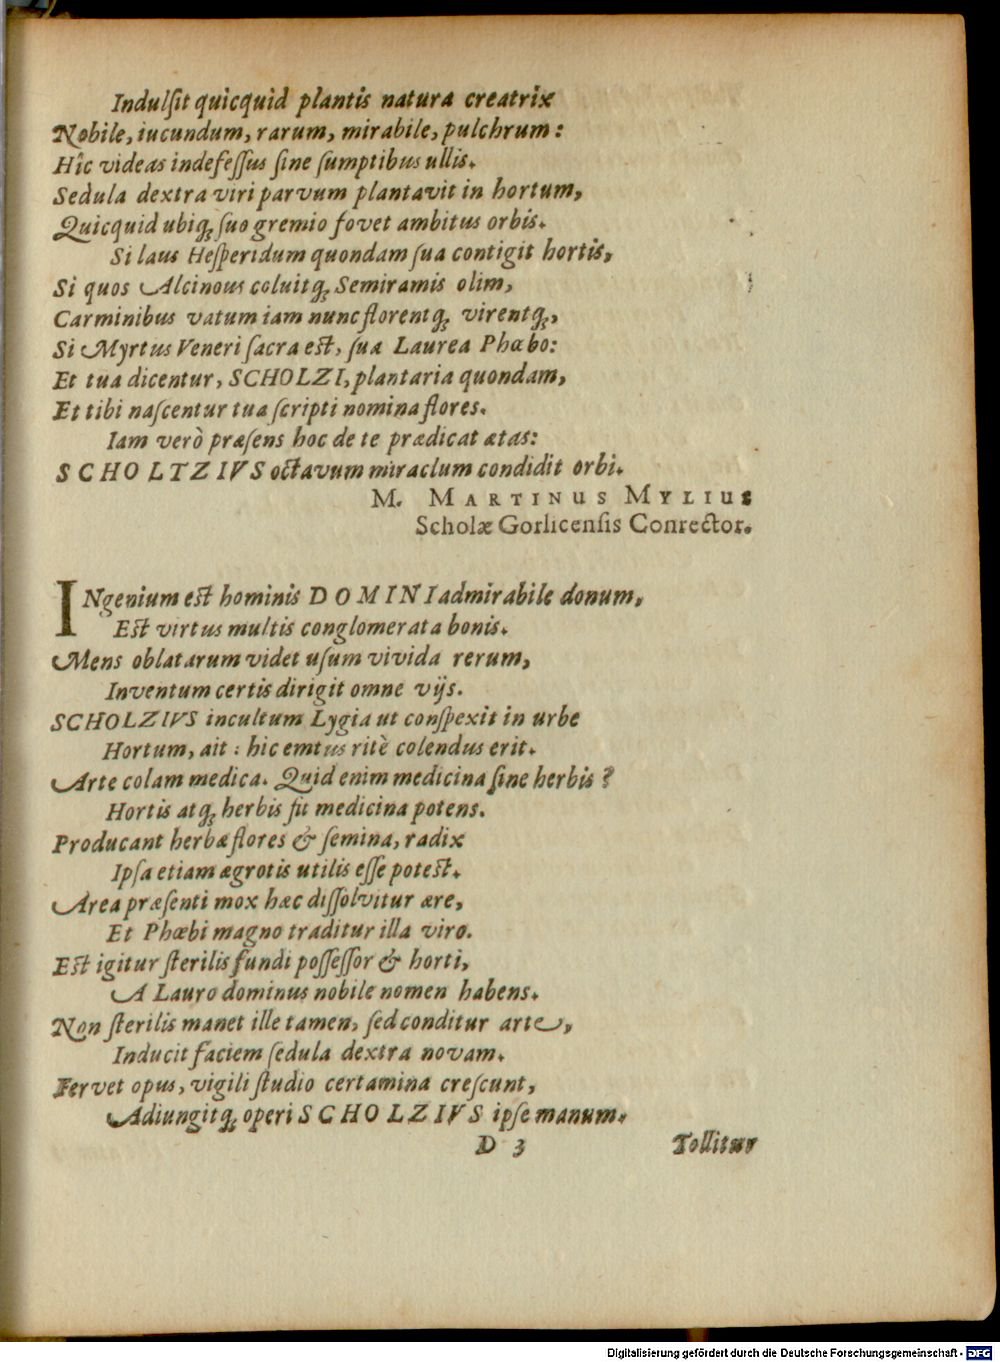 Indulſit quicquid plantis natura creatrix
Nobile, iucundum, rarum, mirabile, pulchrum:
Hîc videas indefeſſus ſine ſumptibus ullis.
Sedula dextra viri parvum plantavit in hortum,
Quicquid ubiq; ſuo gremio fovet ambitus orbis.
Si laus Heſperidum quondam ſua contigit hortis,
Si quos Alcinous coluitq; Semiramis olim,
Carminibus vatum iam nunc florentq; virentq;,
Si Myrtus Veneri ſacra est, ſua Laurea Phœbo:
Et tua dicentur, SCHOLZI, plantaria quondam,
Et tibi naſcentur tua ſcripti nomina flores.
Iam verò præſens hoc de te prædicat ætas:
SCHOLTZIVS octavum miraclum condidit orbi.
M. MARTINUS MYLIUS
Scholæ Gorlicenſis Conrector.
INgenium est hominis DOMINI admirabile donum,
Est virtus multis conglomerata bonis.
Mens oblatarum videt uſum vivida rerum,
Inventum certis dirigit omne vijs.
SCHOLZIVS incultum Lygia ut conſpexit in urbe
Hortum, ait: hic emtus ritè colendus erit.
Arte colam medica. Quid enim medicina ſine herbis?
Hortis atq; herbis fit medicina potens.
Producant herbæ flores & ſemina, radix
Ipſa etiam ægrotis utilis eſſe potest.
Area præſenti mox hæc diſſolvitur ære,
Et Phœbi magno traditur illa viro.
Est igitur ſterilis fundi poſſeſſor & horti,
A Lauro dominus nobile nomen habens.
Non ſterilis manet ille tamen, ſed conditur arte,
Inducit faciem ſedula dextra novam.
Fervet opus, vigili ſtudio certamina creſcunt,
Adiungitq; operi SCHOLZIVS ipſe manum.
D 3 Tollitur
Digitalisierung gefördert durch die Deutsche Forschungsgemeinschaft - DFG